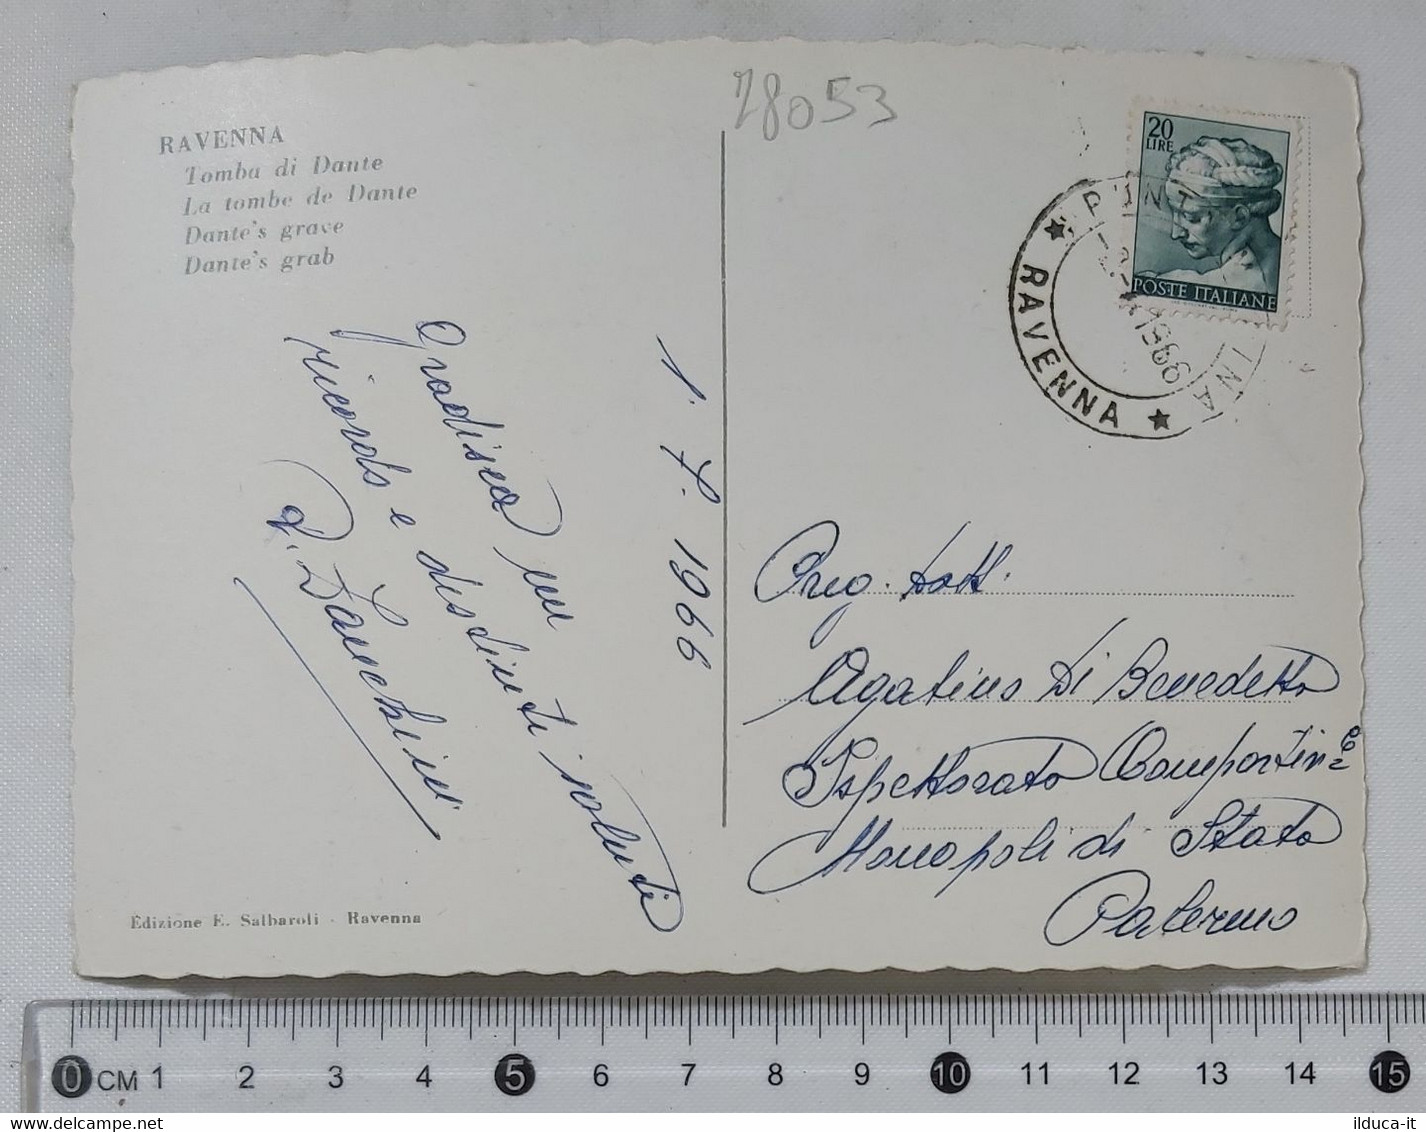 28053
RAVENNA
Tomba di Dante
La tombe de Dante
Dante's grave
Dante's grab
20
LIRE
POSTE ITALIANE
RAVENNA
1966
1. 7. 1966
Gradisca un
ricordo e distinti saluti
Preg. Dott.
Agatino Di Benedetto
Ispettorato Compartim.
Monopoli di Stato
Palermo
Edizione E. Salbaroli - Ravenna
0 CM 1 2 3 4 5 6 7 8 9 10 11 12 13 14 15
ilduca-it